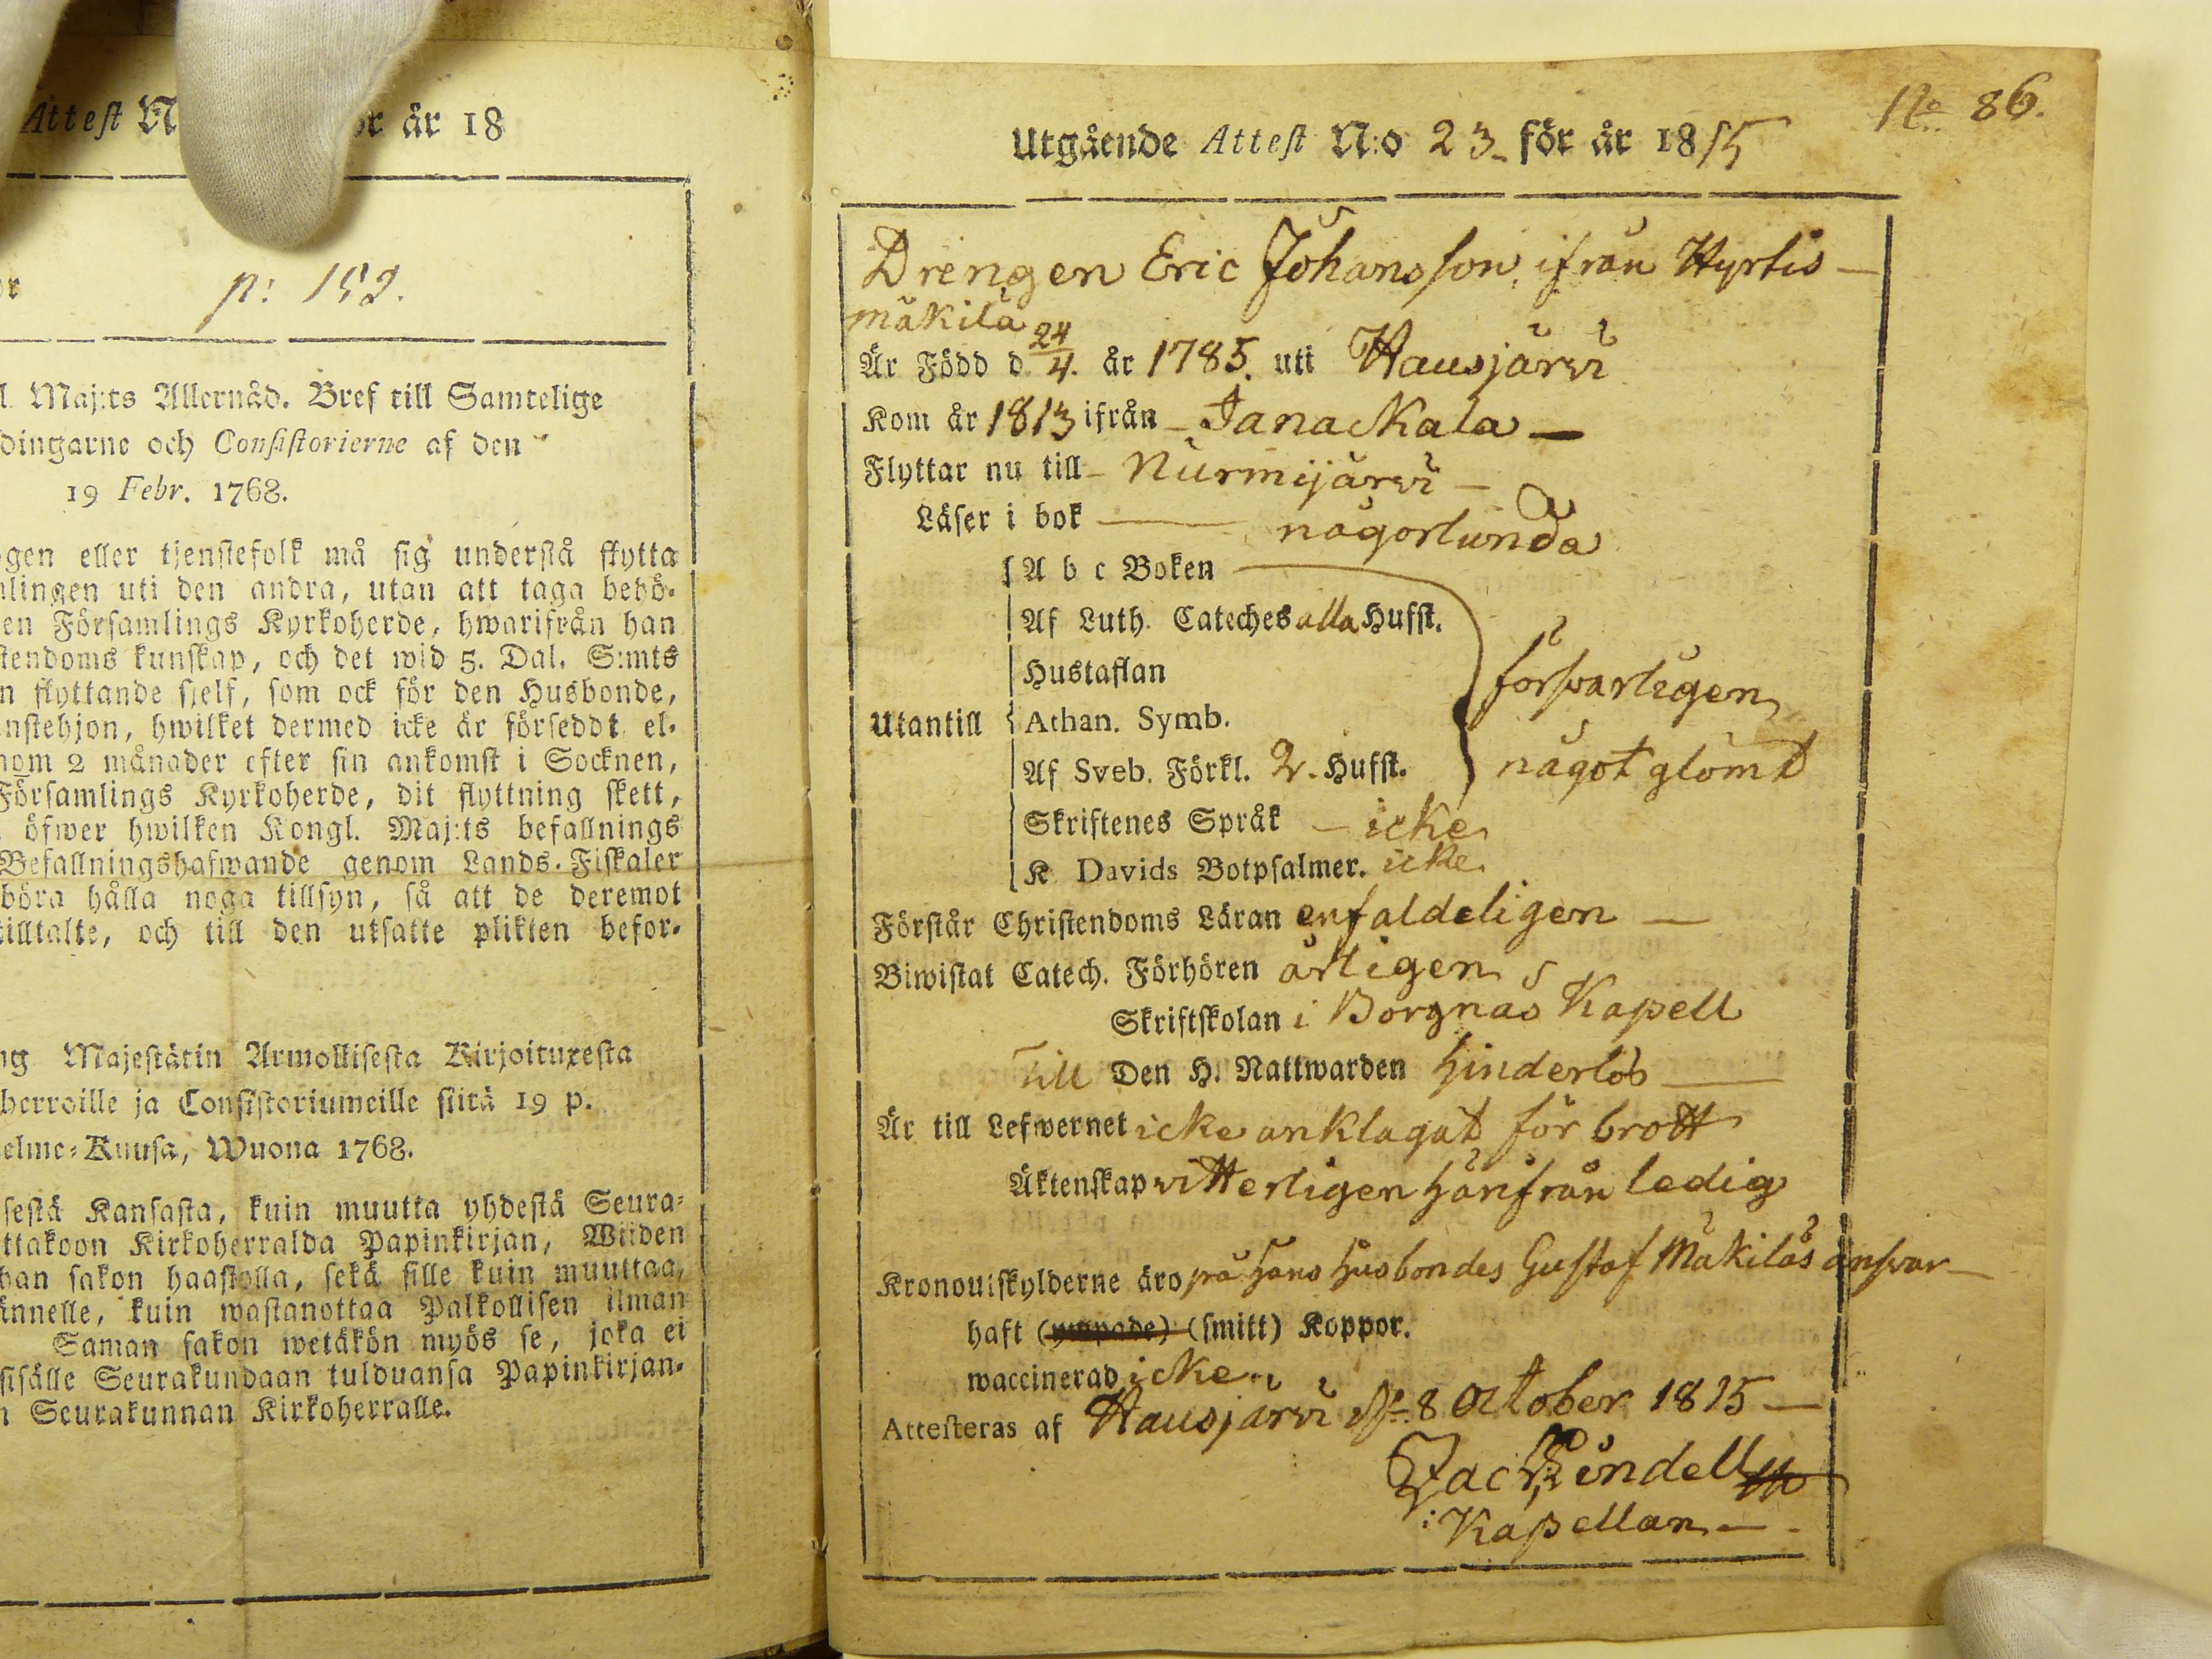 Attest N
or år 18
p: 152.
l. Maj:ts Allernåd. Bref till Samtelige
dingarne och Consistorierne af den
19 Febr. 1768.
gen eller tjenstefolk må sig understå flytta
lingen uti den andra, utan att taga behö-
en Församlings Kyrkoherde, hwarifrån han
stendoms kunskap, och det wid 5. Dal. S:mts
n flyttande sjelf, som ock för den Husbonde,
nstehjon, hwilket dermed icke är förseddt el-
nom 2 månader efter sin ankomst i Socknen,
Församlings Kyrkoherde, dit flyttning skett,
öfwer hwilken Kongl. Maj:ts befallnings
Befallningshafwande genom Lands-Fiskaler
böra hålla noga tillsyn, så att de deremot
tilltalte, och till den utsatte plikten befor-
ng Majestätin Armollisesta Kirjoituxesta
herroille ja Consistoriumeille siitä 19 p.
elme-Kuusa, Wuona 1768.
sestä Kansasta, kuin muutta yhdestä Seura-
ttakoon Kirkoherralda Papinkirjan, Wiiden
han sakon haastolla, sekä sille kuin muuttaa,
ännelle, kuin wastanottaa Palkollisen ilman
Saman sakon wetäkön myös se, joka ei
sisälle Seurakundaan tulduansa Papinkirjan-
n Seurakunnan Kirkoherralle.
No 86.
Utgående Attest N:o 23 för år 1815
Drengen Eric Johansson ifrån Hyrtis-
mäkilä
Är Född d. 24/4. år 1785. uti Hausjärvi
Kom år 1813 ifrån - Janackala -
Flyttar nu till - Nurmijärvi -
Läser i bok - någorlunda
A b c Boken
Af Luth. Cateches alla Hufst.
Hustaflan försvarligen
Utantill Athan. Symb.
Af Sveb. Förkl. 2. Hufst. något glömt
Skriftenes Språk - icke
K. Davids Botpsalmer. icke
Förstår Christendoms Läran enfaldeligen -
Biwistat Catech. Förhören årligen
Skriftskolan i Borgnäs Kapell
Till Den H. Nattwarden hinderlös -
Är till Lefwernet icke anklagat för brott
Äktenskap vitterligen härifrån ledig
Kronoutskylderne äro på hans husbondes Gustaf Mäkiläs ansvar -
haft (ympade) (smitt) Koppor.
waccinerad icke.
Attesteras af Hausjärvi d. 8 October 1815 -
Jac Lindell
Kapellan -